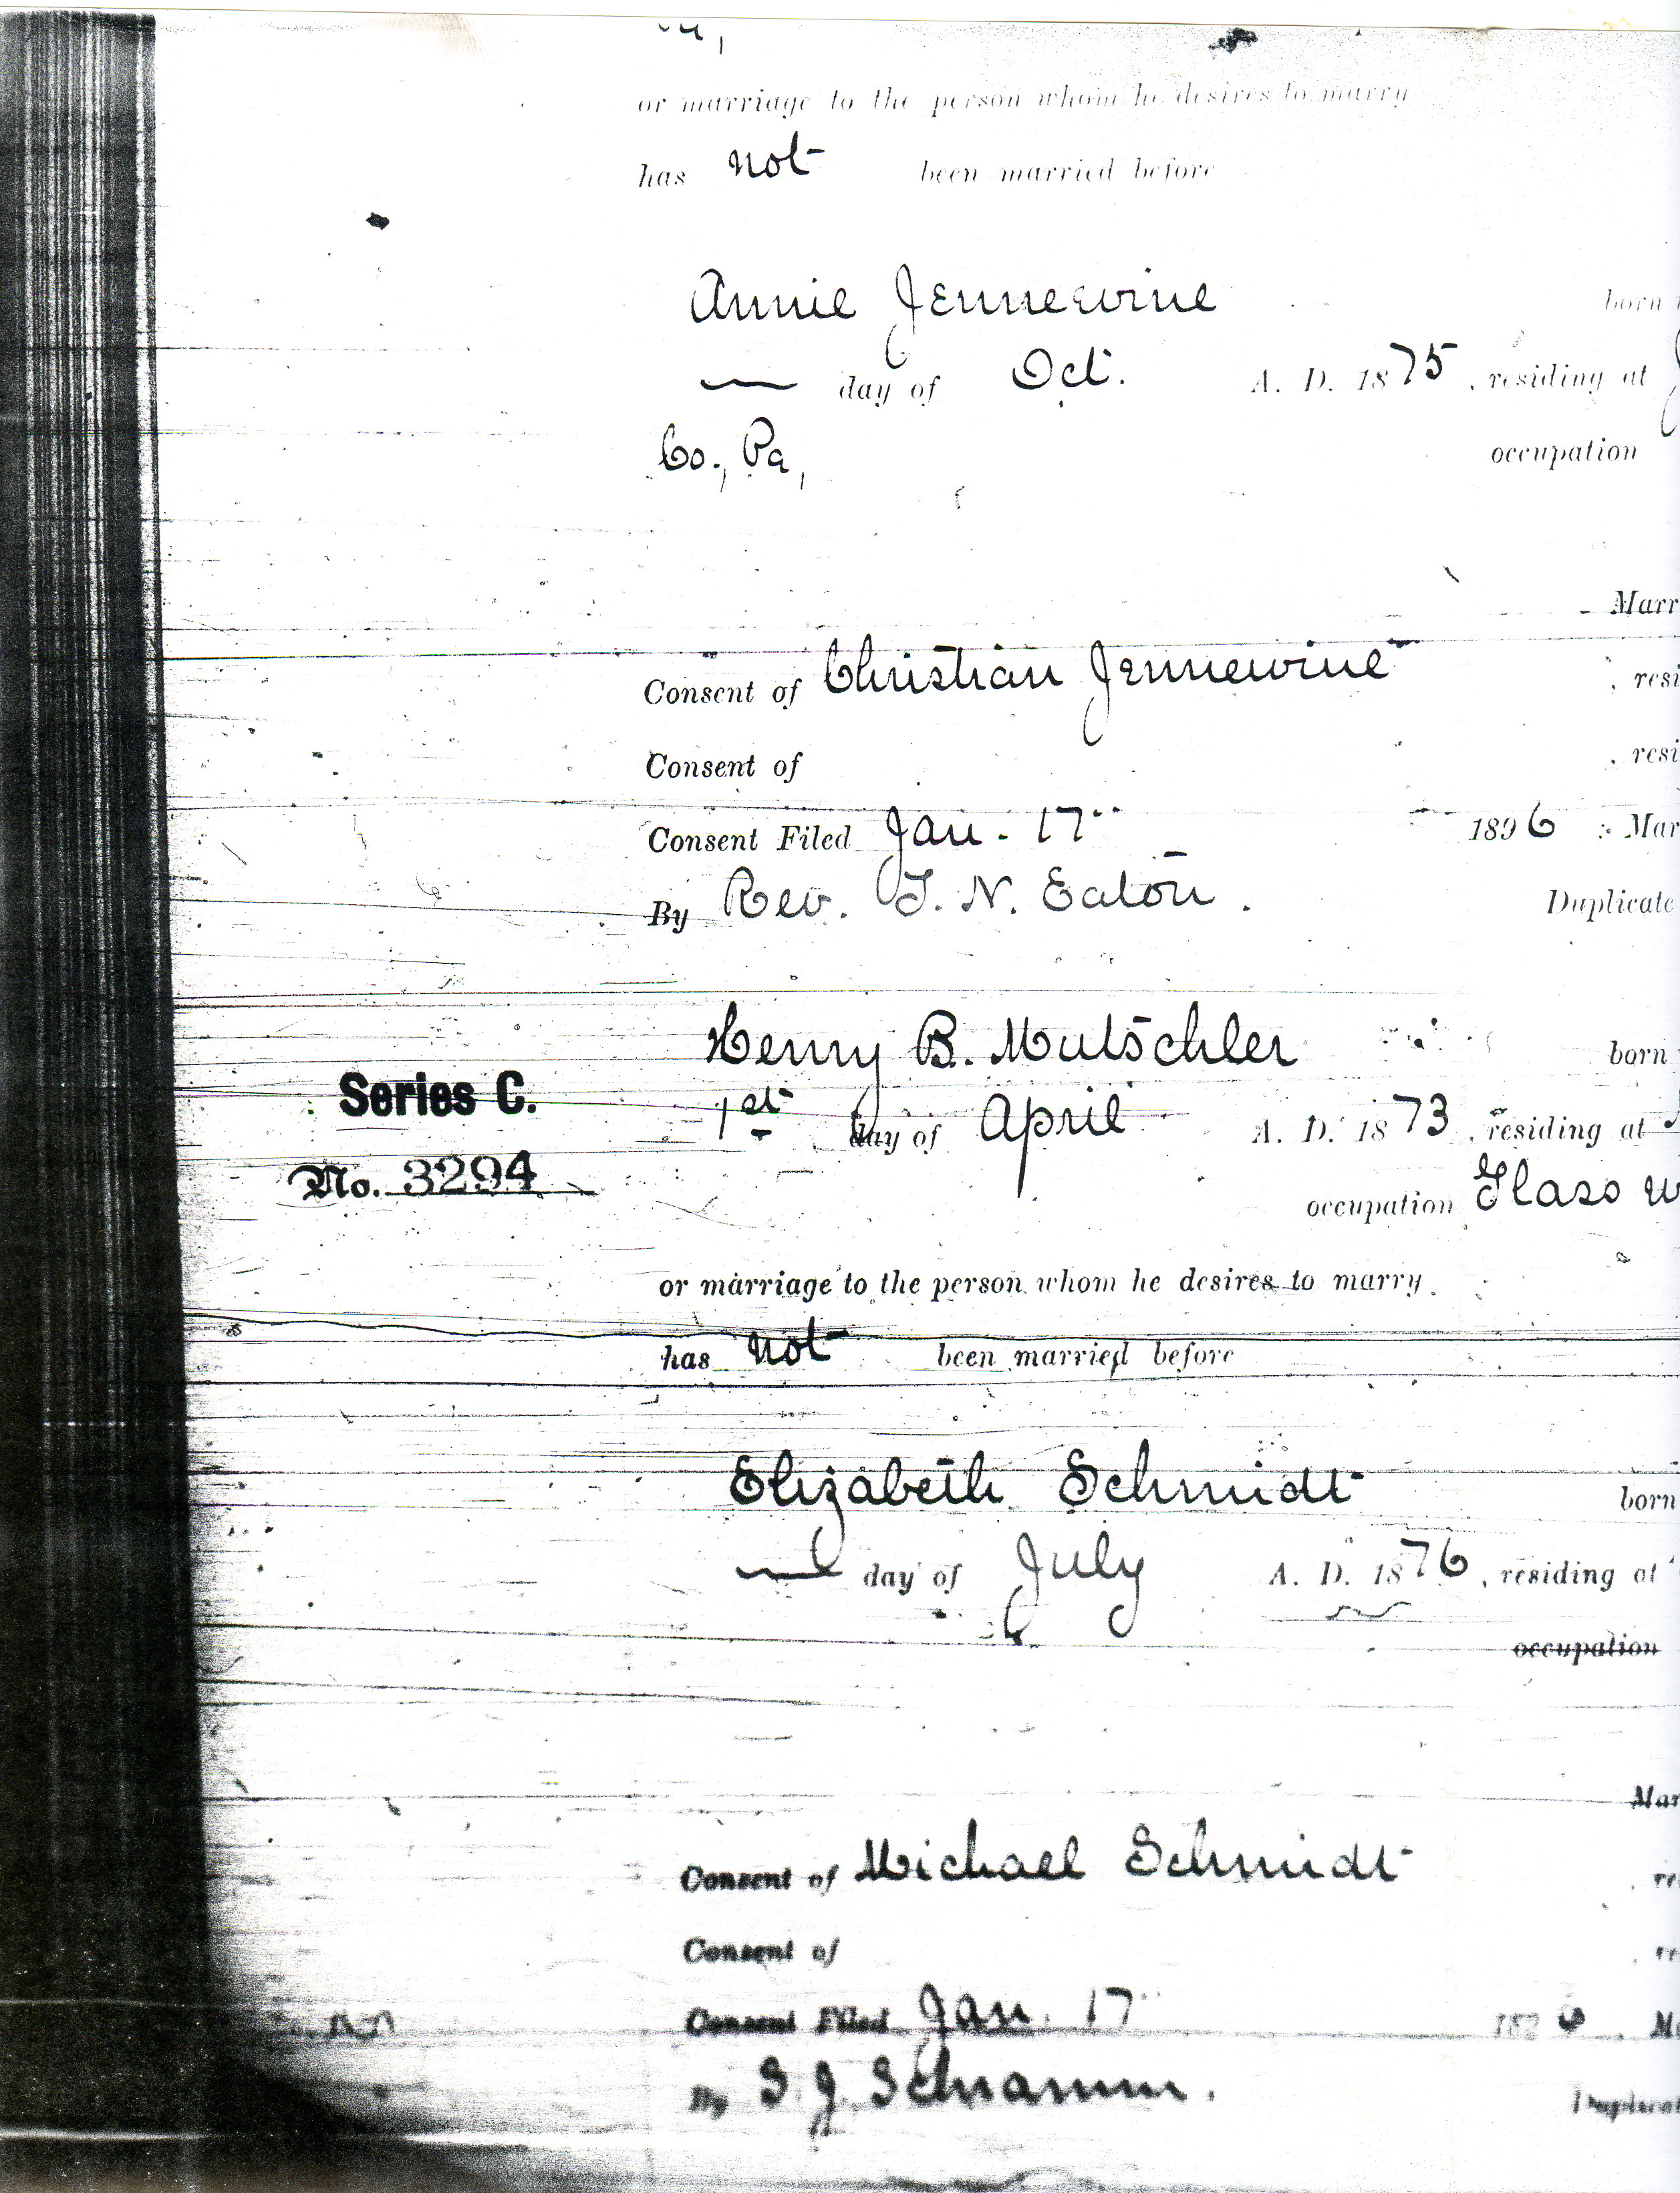 or marriage to the person whom he desires to marry
has not been married before
Annie Jennewine born
day of Oct. A. D. 1875, residing at
Co., Pa, occupation
Marr
Consent of Christian Jennewine , resi
Consent of , resi
Consent Filed Jan. 17 1896 Mar
By Rev. T. N. Eaton. Duplicate
Henry B. Mutschler born
Series C. 1st day of April A. D. 1873, residing at
No. 3294 occupation Glass w
or marriage to the person whom he desires to marry
has not been married before
Elizabeth Schmidt born
day of July A. D. 1876, residing at
occupation
Mar
Consent of Michael Schmidt , re
Consent of , re
Consent Filed Jan. 17 M
By S. J. Schramm. Duplicat